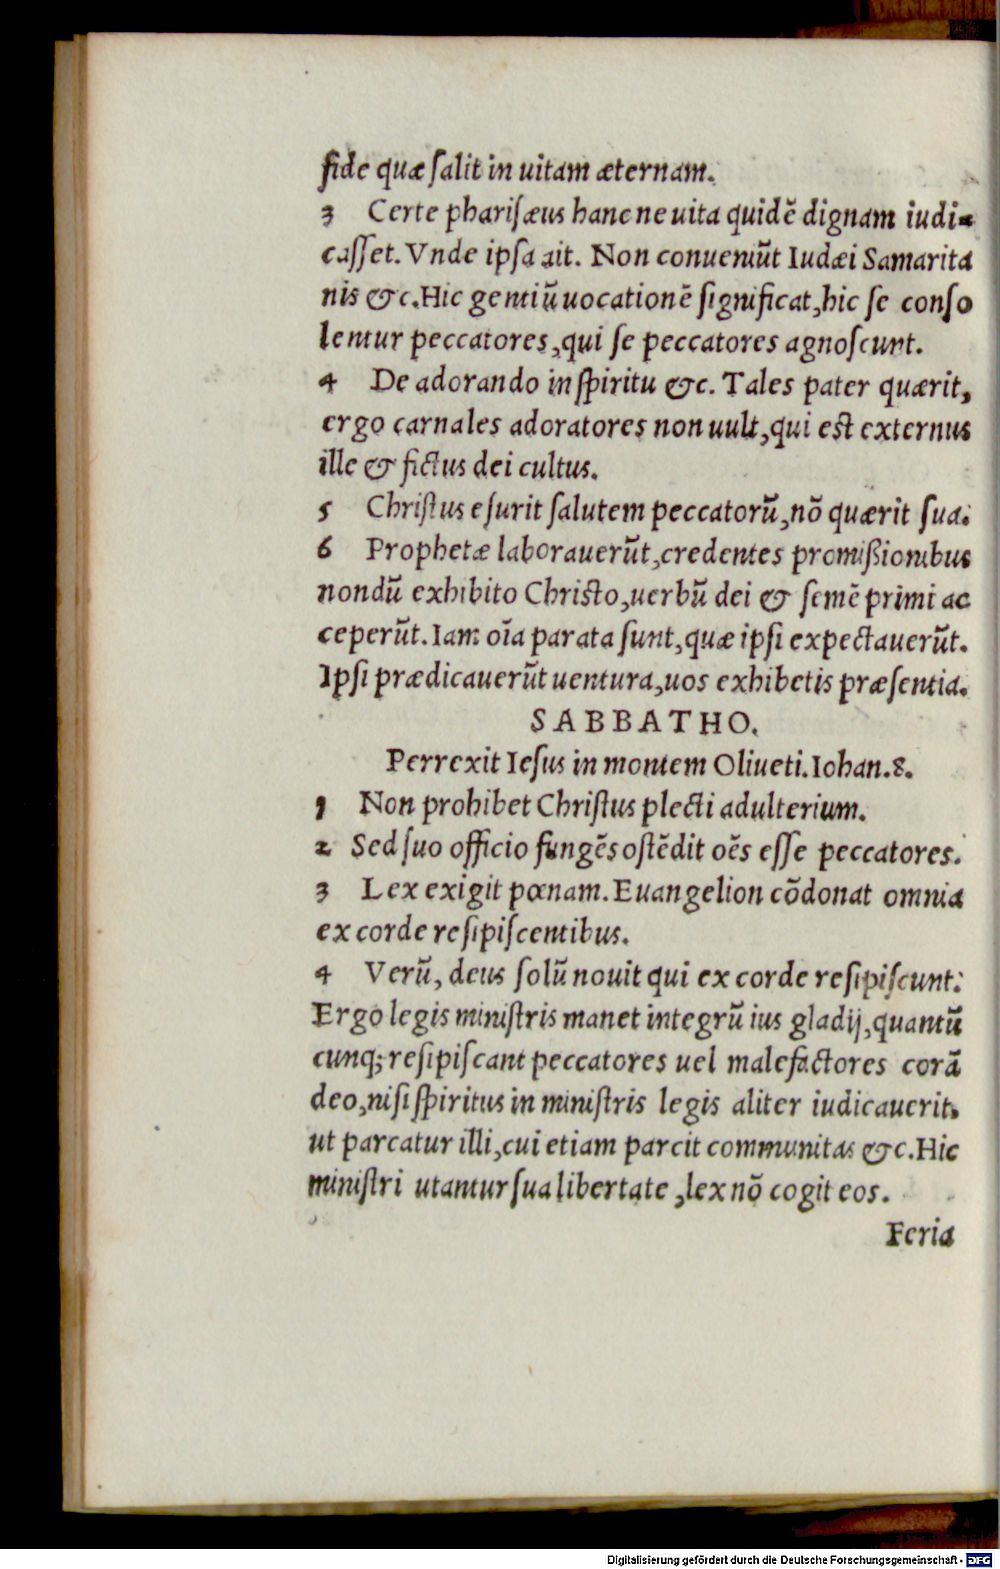 fide quæ ſalit in uitam æternam.
3 Certe phariſæus hanc ne uita quidē dignam iudi-
caſſet. Vnde ipſa ait. Non conueniūt Iudæi Samarita
nis &c. Hic gentiū uocationē ſignificat, hic ſe conſo
lentur peccatores, qui ſe peccatores agnoſcunt.
4 De adorando in ſpiritu &c. Tales pater quærit,
ergo carnales adoratores non uult, qui eſt externus
ille & fictus dei cultus.
5 Chriſtus eſurit ſalutem peccatorū, nō quærit ſua.
6 Prophetæ laborauerūt, credentes promißionibus
nondū exhibito Chriſto, uerbū dei & ſemē primi ac
ceperūt. Iam oīa parata ſunt, quæ ipſi expectauerūt.
Ipſi prædicauerūt uentura, uos exhibetis præſentia.
SABBATHO.
Perrexit Ieſus in montem Oliueti. Iohan. 8.
1 Non prohibet Chriſtus plecti adulterium.
2 Sed ſuo officio fungēs oſtēdit oēs eſſe peccatores.
3 Lex exigit pœnam. Euangelion cōdonat omnia
ex corde reſipiſcentibus.
4 Verū, deus ſolū nouit qui ex corde reſipiſcunt:
Ergo legis miniſtris manet integrū ius gladij, quantū
cunq; reſipiſcant peccatores uel malefactores corā
deo, niſi ſpiritus in miniſtris legis aliter iudicauerit,
ut parcatur illi, cui etiam parcit communitas &c. Hic
miniſtri utantur ſua libertate, lex nō cogit eos.
Feria
Digitalisierung gefördert durch die Deutsche Forschungsgemeinschaft - DFG